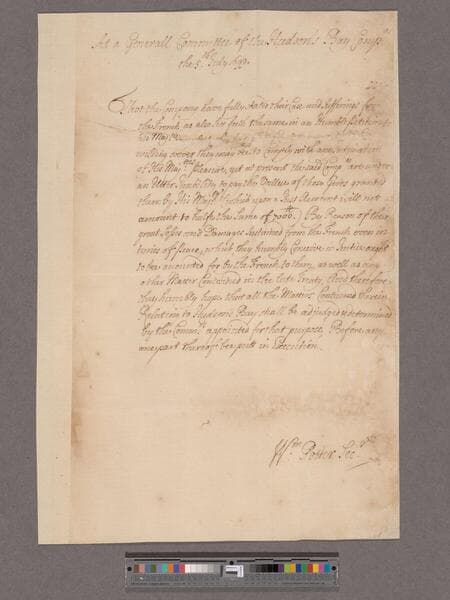 At a Generall Committee of the Hudson's Bay Compa
the 5th July 1699.
That the Company have fully stated their Case and Sufferings
the French as also set forth the same in an humble Petition to
his Majtie
willing they may be to comply with any intimation
of His Majties pleasure, yet at present the said Compa are under
an Utter Inability to pay the Vallue of those
them by His Majtie (which upon a Just will not
amount to halfe the Sume of 7000£.) By Reason of their
great Losses and Damages Sustained from the French even in
times of Peace, which they humbly Conceive is
to bee accounted for by the French to them, as well as any
other Matter Concerned in the late Treaty, And therefore
they humbly hope that all the Matters Contained therein
Relateing to Hudson's Bay shall be adjudged & determined
by the Commrs appointed for that purpose, Before any
one part thereof bee putt in Execution.
Wm Potter Secry